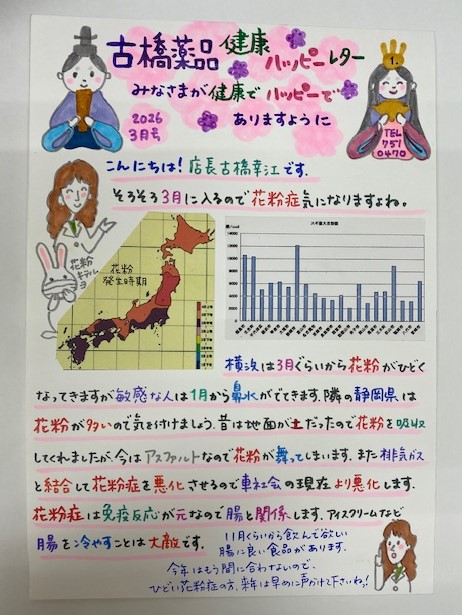 古橋薬品 健康 ハッピーレター
みなさまが健康でハッピーで
ありますように
2026
3月号
1.
TEL
751
0470
こんにちは！店長古橋幸江です。
そろそろ3月に入るので花粉症気になりますよね。
花粉
キテル
ヨ
花粉
発生時期
12000
10000
8000
6000
4000
2000
0
横浜は3月ぐらいから花粉がひどく
なってきますが敏感な人は1月から鼻水がでてきます。隣の静岡県は
花粉が多いので気を付けましょう。昔は地面が土だったので花粉を吸収
してくれましたが、今はアスファルトなので花粉が舞ってしまいます。また排気ガス
と結合して花粉症を悪化させるので車社会の現在より悪化します。
花粉症は免疫反応が元なので腸と関係します。アイスクリームなど
腸を冷やすことは大敵です。
11月ぐらいから飲んで欲しい
腸に良い食品があります。
今年はもう間に合わないので、
ひどい花粉症の方、来年は早めに声かけて下さいね！